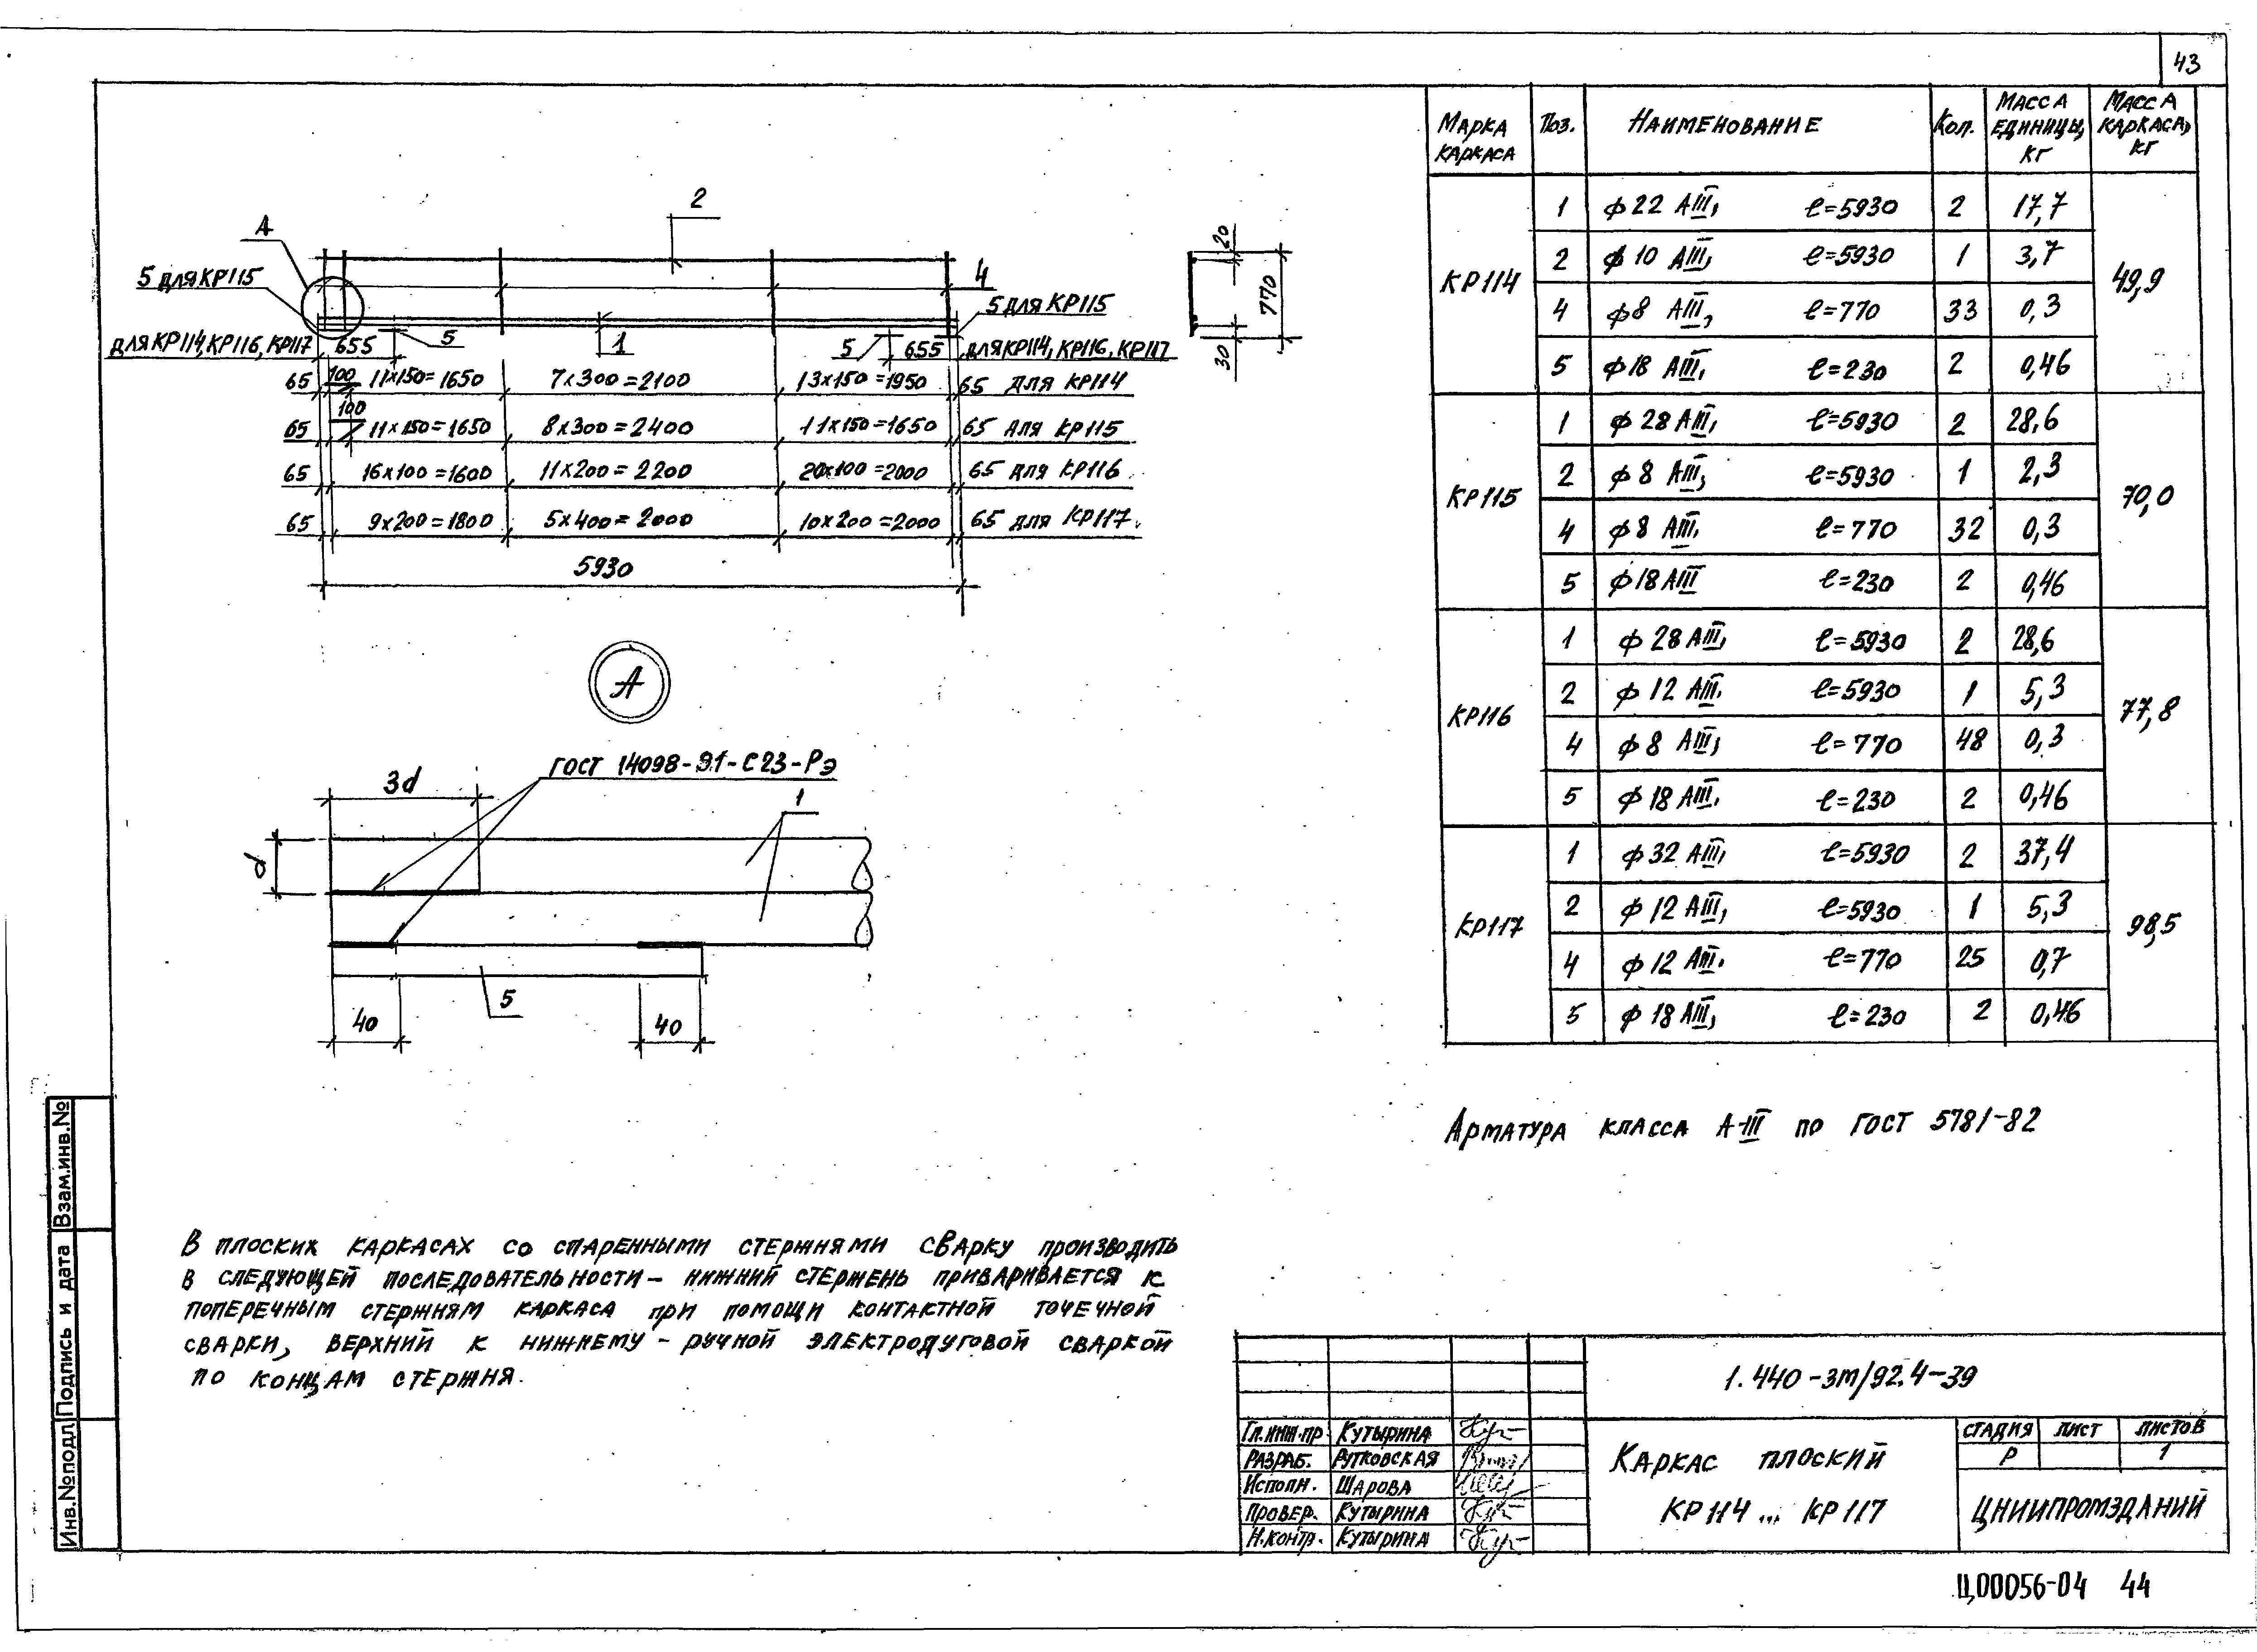 43
А
2
4
5 для КР115
5 для КР115
для КР114, КР116, КР117 655 5
1
5 655 для КР114, КР116, КР117
65 100 11×150=1650 7×300=2100 13×150=1950 65 для КР114
65 100 11×150=1650 8×300=2400 11×150=1650 65 для КР115
65 16×100=1600 11×200=2200 20×100=2000 65 для КР116
65 9×200=1800 5×400=2000 10×200=2000 65 для КР117
5930
20
770
30
А
ГОСТ 14098-91-С23-Рэ
3d
1
d
5
40 40
Марка каркаса Поз. Наименование Кол. Масса единицы, кг Масса каркаса, кг
КР114 1 ф22 АIII, ℓ=5930 2 17,7 49,9
2 ф10 АIII, ℓ=5930 1 3,7
4 ф8 АIII, ℓ=770 33 0,3
5 ф18 АIII, ℓ=230 2 0,46
КР115 1 ф28 АIII, ℓ=5930 2 28,6 70,0
2 ф8 АIII, ℓ=5930 1 2,3
4 ф8 АIII, ℓ=770 32 0,3
5 ф18 АIII ℓ=230 2 0,46
КР116 1 ф28 АIII, ℓ=5930 2 28,6 77,8
2 ф12 АIII, ℓ=5930 1 5,3
4 ф8 АIII, ℓ=770 48 0,3
5 ф18 АIII, ℓ=230 2 0,46
КР117 1 ф32 АIII, ℓ=5930 2 37,4 98,5
2 ф12 АIII, ℓ=5930 1 5,3
4 ф12 АIII, ℓ=770 25 0,7
5 ф18 АIII, ℓ=230 2 0,46
Арматура класса А-III по ГОСТ 5781-82
В плоских каркасах со спаренными стержнями сварку производить
в следующей последовательности – нижний стержень приваривается к
поперечным стержням каркаса при помощи контактной точечной
сварки, верхний к нижнему – ручной электродуговой сваркой
по концам стержня.
Инв.№подл Подпись и дата Взам.инв.№
1.440-3т/92.4-39
Гл.инж.пр. Кутырина
Разраб. Рутковская
Исполн. Шарова
Провер. Кутырина
Н.контр. Кутырина
Каркас плоский
КР114... КР117
стадия лист листов
Р 1
ЦНИИПРОМЗДАНИЙ
Ц00056-04 44